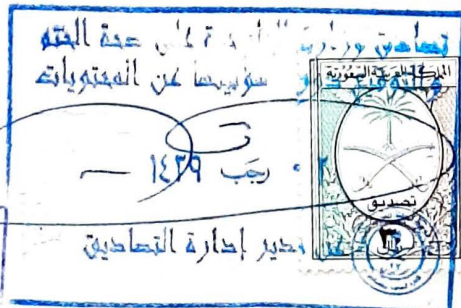 تصادق وزارة على صحة الختم
والتوقيع دون مسؤوليتها عن المحتويات
المملكة العربية السعودية
رجب ١٤٣٩
تصديق
٣٠
ريال
عن مدير إدارة التصاديق